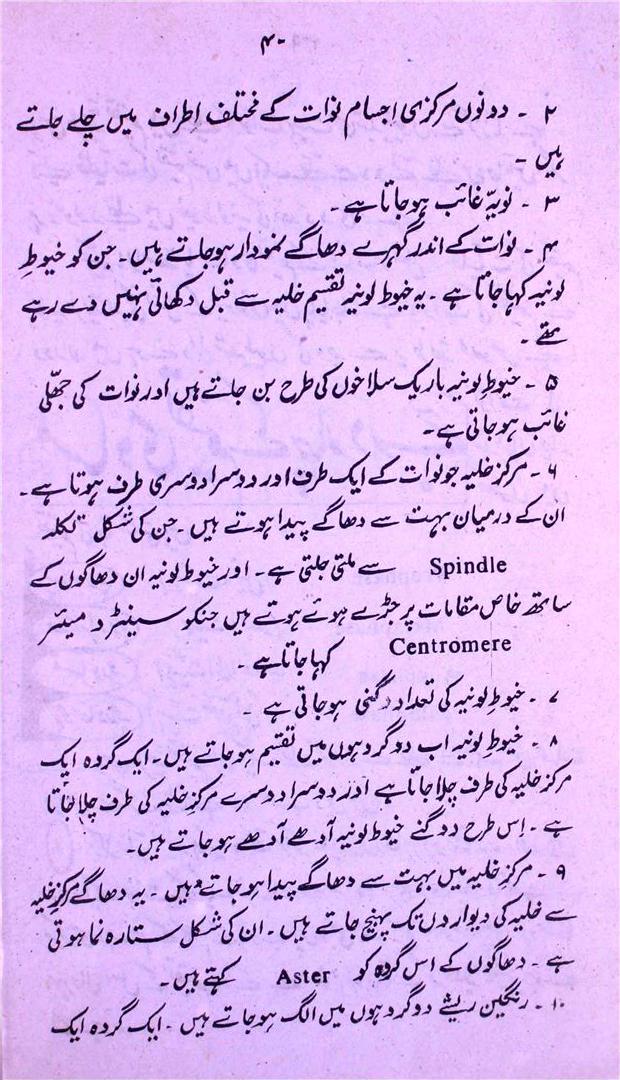 ۴۰
۲ ۔ دونوں مرکزی اجسام نوات کے مختلف اطراف میں چلے جاتے
ہیں ۔
۳ ۔ نویہّ غائب ہوجاتا ہے ۔
۴ ۔ نوات کے اندر گہرے دھاگے نمودار ہوجاتے ہیں ۔ جن کو خیوطِ
لونیہ کہا جاتا ہے ۔ یہ خیوط لونیہ تقسیم خلیہ سے قبل دکھائی نہیں دے رہے
تھے ۔
۵ ۔ خیوطِ لونیہ باریک سلاخوں کی طرح بن جاتے ہیں اور نوات کی جھلّی
غائب ہوجاتی ہے ۔
۶ ۔ مرکز خلیہ جو نوات کے ایک طرف اور دوسرا دوسری طرف ہوتا ہے ۔
ان کے درمیان بہت سے دھاگے پیدا ہوتے ہیں ۔ جن کی شکل تکلہ
Spindle سے ملتی جلتی ہے ۔ اور خیوط لونیہ ان دھاگوں کے
ساتھ خاص مقامات پر جڑے ہوئے ہوتے ہیں جنکو سینٹرومیئر
Centromere کہا جاتا ہے ۔
۷ ۔ خیوطِ لونیہ کی تعداد دگنی ہوجاتی ہے ۔
۸ ۔ خیوطِ لونیہ اب دو گروہوں میں تقسیم ہوجاتے ہیں ۔ ایک گروہ ایک
مرکز خلیہ کی طرف چلا جاتا ہے اور دوسرا دوسرے مرکزِ خلیہ کی طرف چلا جاتا
ہے ۔ اِس طرح دوگنے خیوط لونیہ آدھے آدھے ہوجاتے ہیں ۔
۹ ۔ مرکزِ خلیہ میں بہت سے دھاگے پیدا ہوجاتے ہیں ۔ یہ دھاگے مرکزِ خلیہ
سے خلیہ کی دیواروں تک پہنچ جاتے ہیں ۔ ان کی شکل ستارہ نما ہوتی
ہے ۔ دھاگوں کے اس گروہ کو Aster کہتے ہیں ۔
۱۰ ۔ رنگین ریشے دو گروہوں میں الگ ہوجاتے ہیں ۔ ایک گروہ ایک